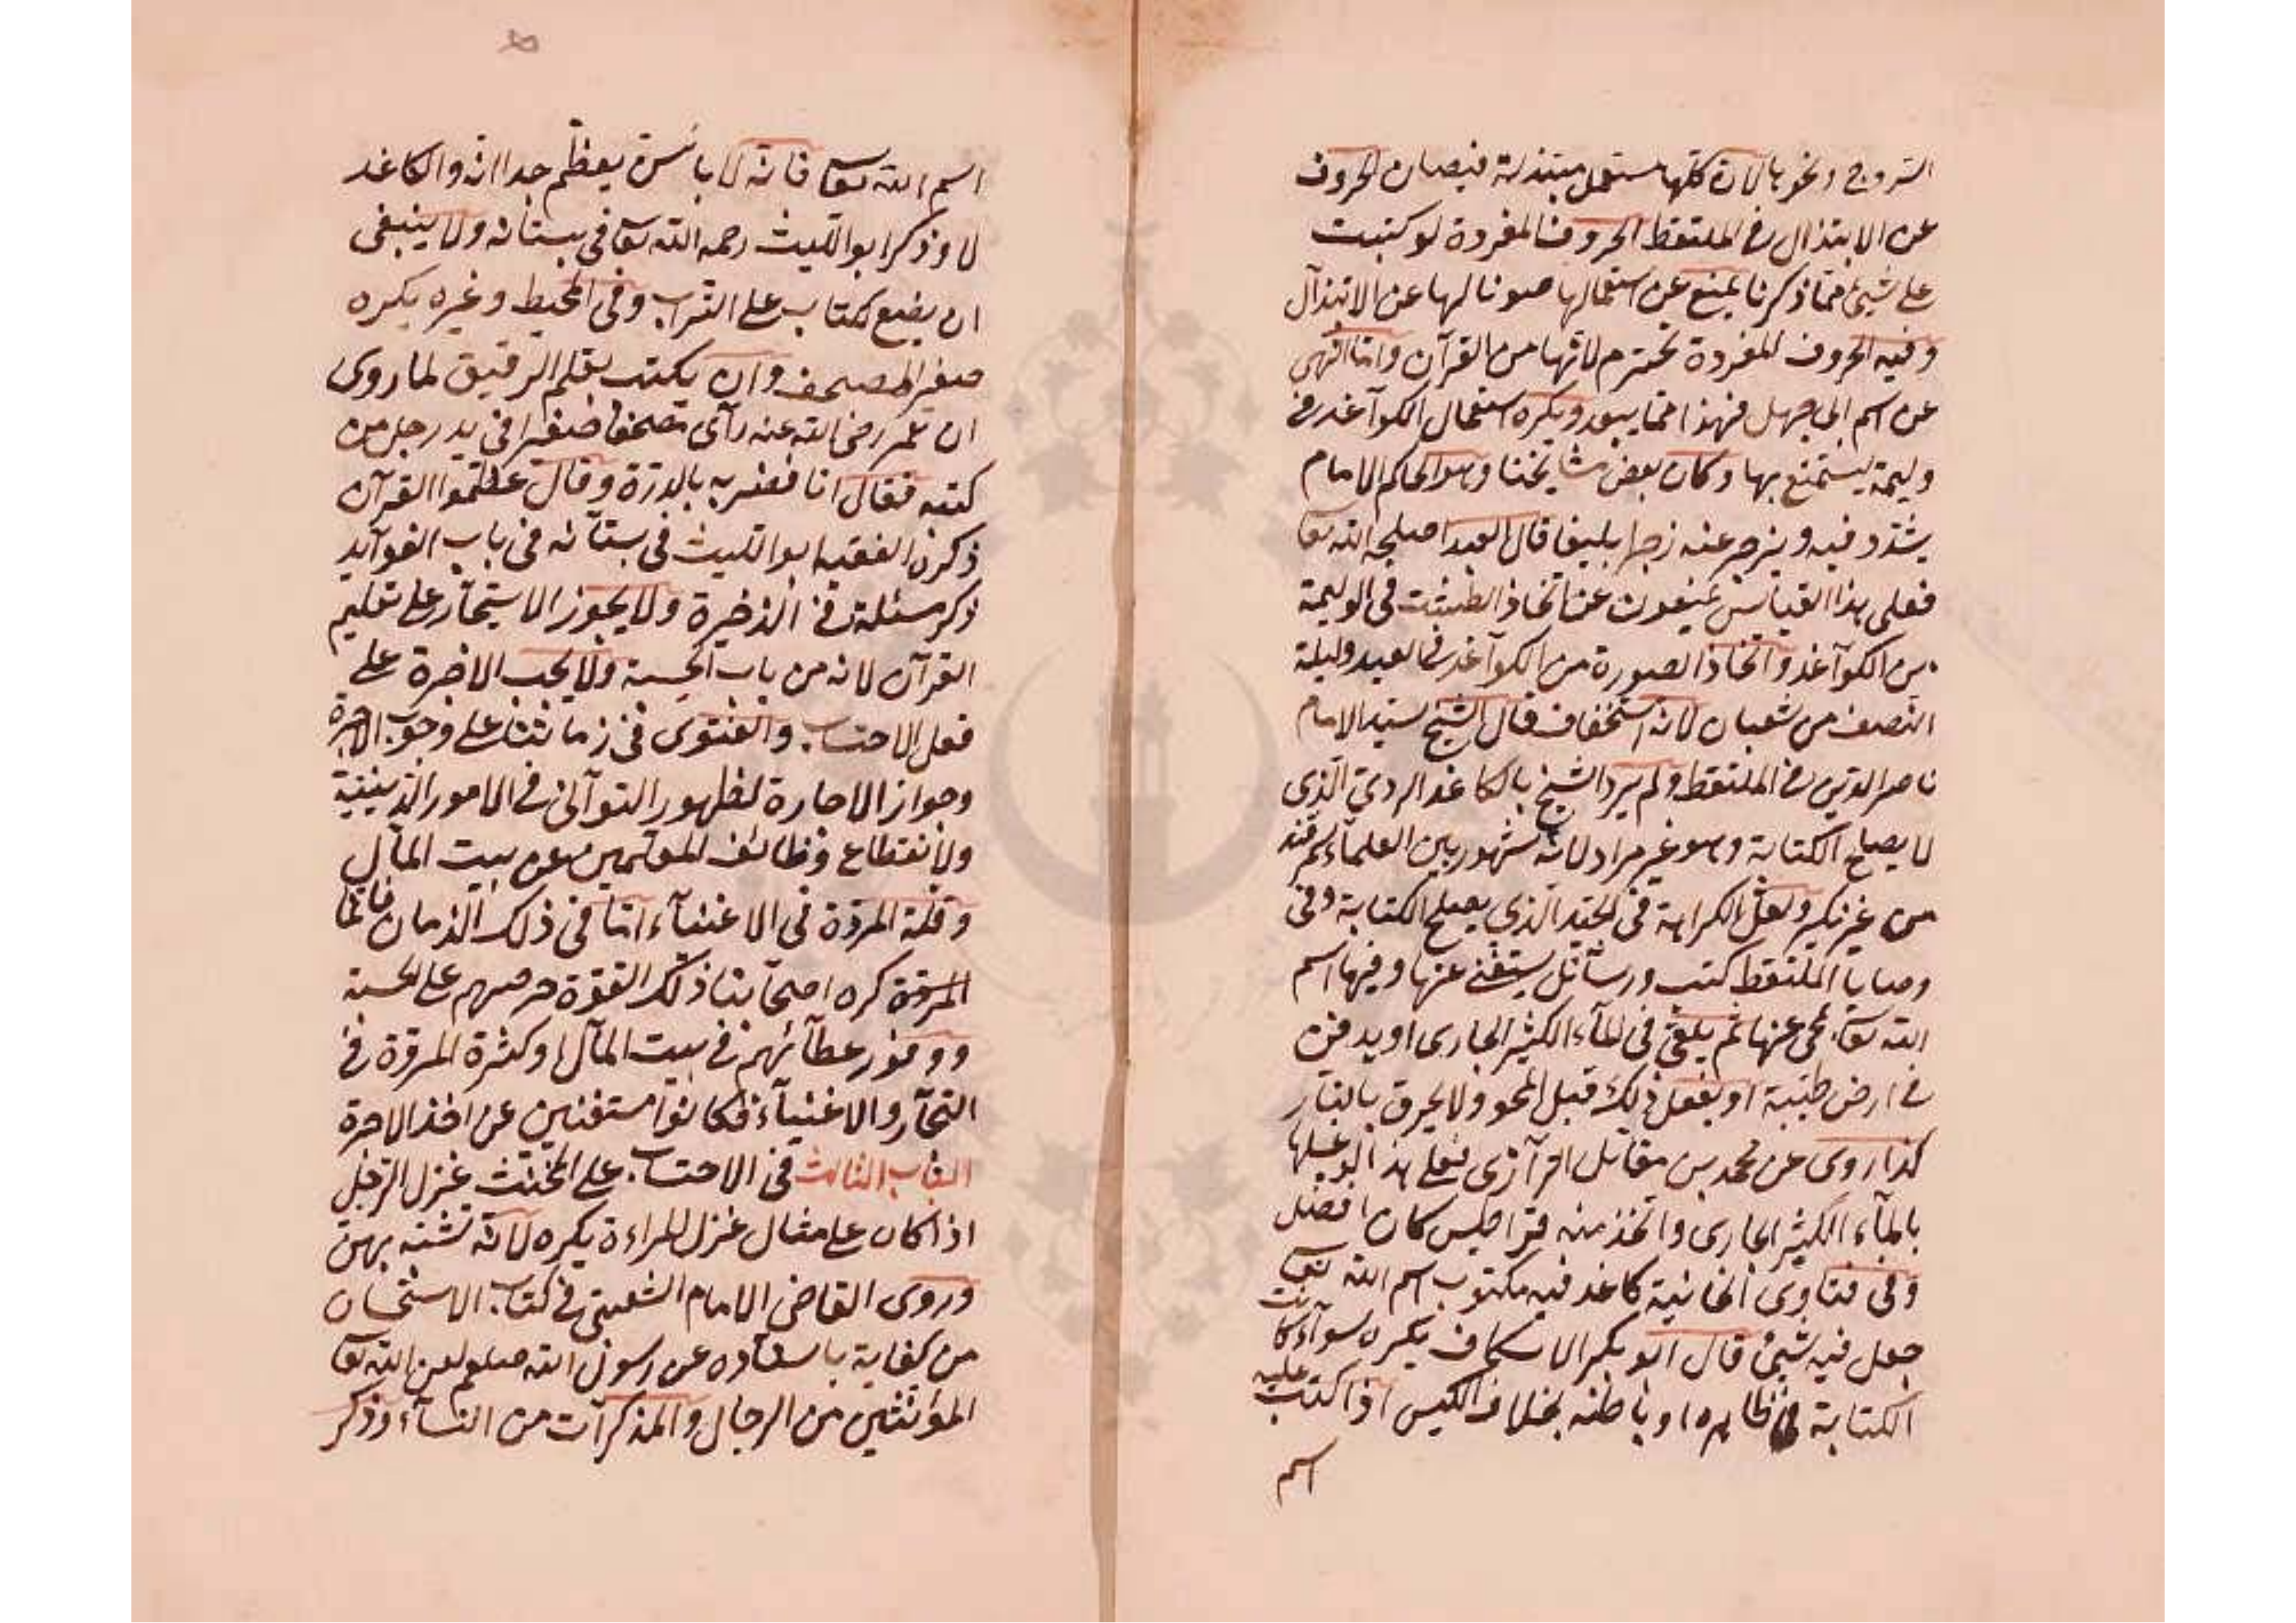 السروج ونحوها لان كلها مستعمل مبتذلة فيصان الحروف
عن الابتذال في الملتقط الحروف المفردة لو كتبت
على شيئ مما ذكرنا يمنع عن استعمالها صونا لها عن الابتذال
وفيه الحروف المفردة تحترم لانها من القرآن واما النهى
عن اسم ابى جهل فهذا مما يبعد ويكره استعمال الكواغد في
وليمة ليستمتع بها وكان بعض مشايخنا وهو الحاكم الامام
يشدد فيه ويزجر عنه زجرا بليغا قال العبد اصلحه الله تعا
فعلى هذا القياس يمنعون عن اتخاذ الطبشت في الوليمة
من الكواغد واتخاذ الصورة من الكواغد في العيد وليلة
النصف من شعبان لانه استخفاف قال الشيخ السيد الامام
ناصر الدين في الملتقط ولم يرد الشيخ بالكاغد الردئ الذى
لا يصلح الكتابة وهو غير مراد لانه مشهور بين العلماء بسمرقند
من غير نكير ولعل الكراهة في الجيد الذى يصلح الكتابة وفى
وصايا الملتقط كتب ورسائل يستغنى عنها وفيها اسم
الله تعا محى عنها ثم يلقى في الماء الكثير الجارى او يدفن
في ارض طيبة او يفعل ذلك قبل المحو ولا يحرق بالنار
كذا روى عن محمد بن مقاتل الرازى فعلى هذا لو غسلها
بالماء الكثير الجارى واتخذ منه قراطيس كان افضل
وفى فتاوى الخانية كاغد فيه مكتوب اسم الله تعا
جعل فيه شيئ قال ابو بكر الاسكاف يكره سواء كانت
الكتابة في ظاهره او باطنه بخلاف الكيس اذا كتب عليه
اسم
اسم الله تعا فانه لا باس يعظم جدا انه والكاغد
لا وذكر ابو الليث رحمه الله تعا في بستانه ولا ينبغى
ان يضع كتابا على التراب وفى المحيط وغيره يكره
صغير المصحف وان يكتب بقلم الرقيق لما روى
ان عمر رضى الله عنه رأى مصحفا صغيرا في يد رجل من
كتبه فقال انا فضربه بالدرة وقال عظموا القرآن
ذكره الفقيه ابو الليث في بستانه في باب الفوآيد
ذكر مسئلة في الذخيرة ولا يجوز الاستيجار على تعليم
القرآن لانه من باب الحسبة ولا يجب الاجرة على
فعل الاحتساب والفتوى في زماننا على وجوب الاجرة
وجواز الاجارة لظهور التوانى في الامور الدينية
ولانقطاع وظائف المعلمين عن بيت المال
وقلة المروة في الاغنياء اما في ذلك الزمان فانما
المروة كره اصحابنا ذلك لقوة حرصهم على الحسبة
ووفور عطائهم في بيت المال وكثرة المروة في
التجار والاغنياء فكانوا مستغنين عن اخذ الاجرة
الباب الثالث في الاحتساب على المخنث غزل الرجل
اذا كان على مثال غزل المراءة يكره لانه تشبه بهن
وروى القاضى الامام الشعبى في كتاب الاستحسان
من كفاية باسناده عن رسول الله صلعم لعن الله تعا
المؤنثين من الرجال والمذكرات من النساء وذكر